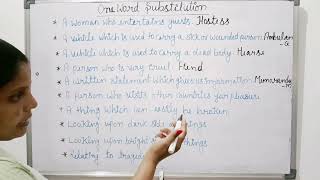 One Word Substitution
* A woman who entertains guests. Hostess
* A vehicle which is used to carry a sick or wounded person. Ambulan-
ce
* A vehicle which is used to carry a dead body. Hearse
* A person who is very cruel. Fiend
* A written statement which gives us information. Memorandu-
m
* A person who visits other countries for pleasure.
* A thing which can easily be broken
* Looking upon dark side things
* Looking upon bright things
* Relating to tragedy